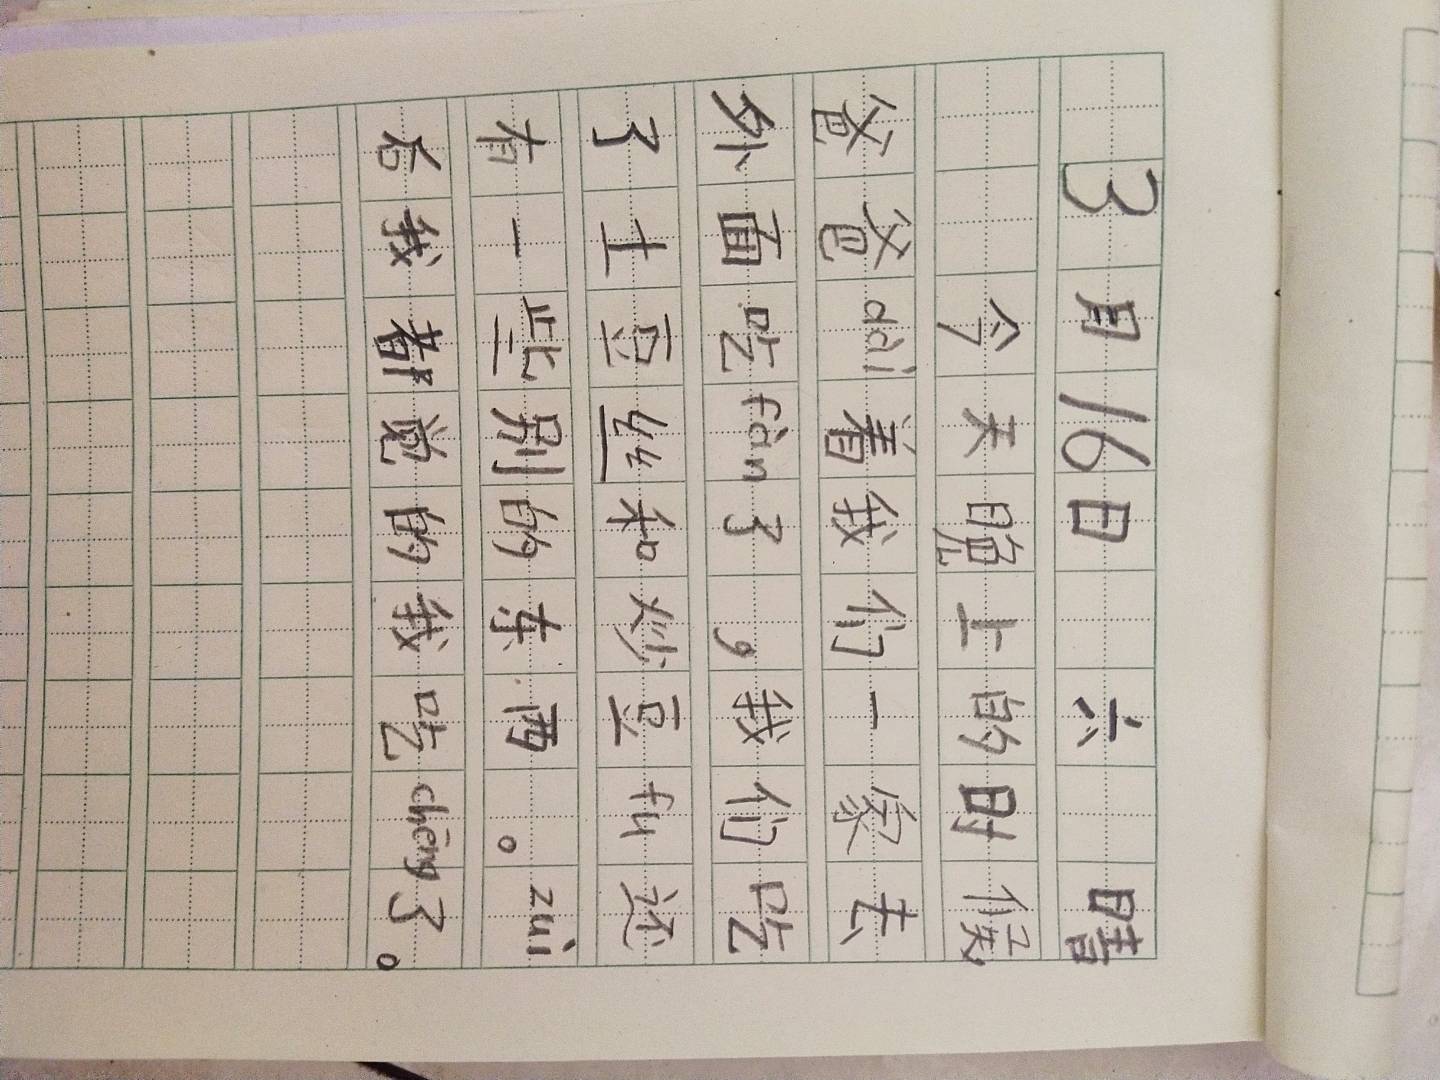 3月16日 六 晴
今天晚上的时候
爸爸dài着我们一家去
外面吃fàn了，我们吃
了土豆丝和炒豆fu还
有一些别的东西。zuì
后我都觉的我吃chēng了。